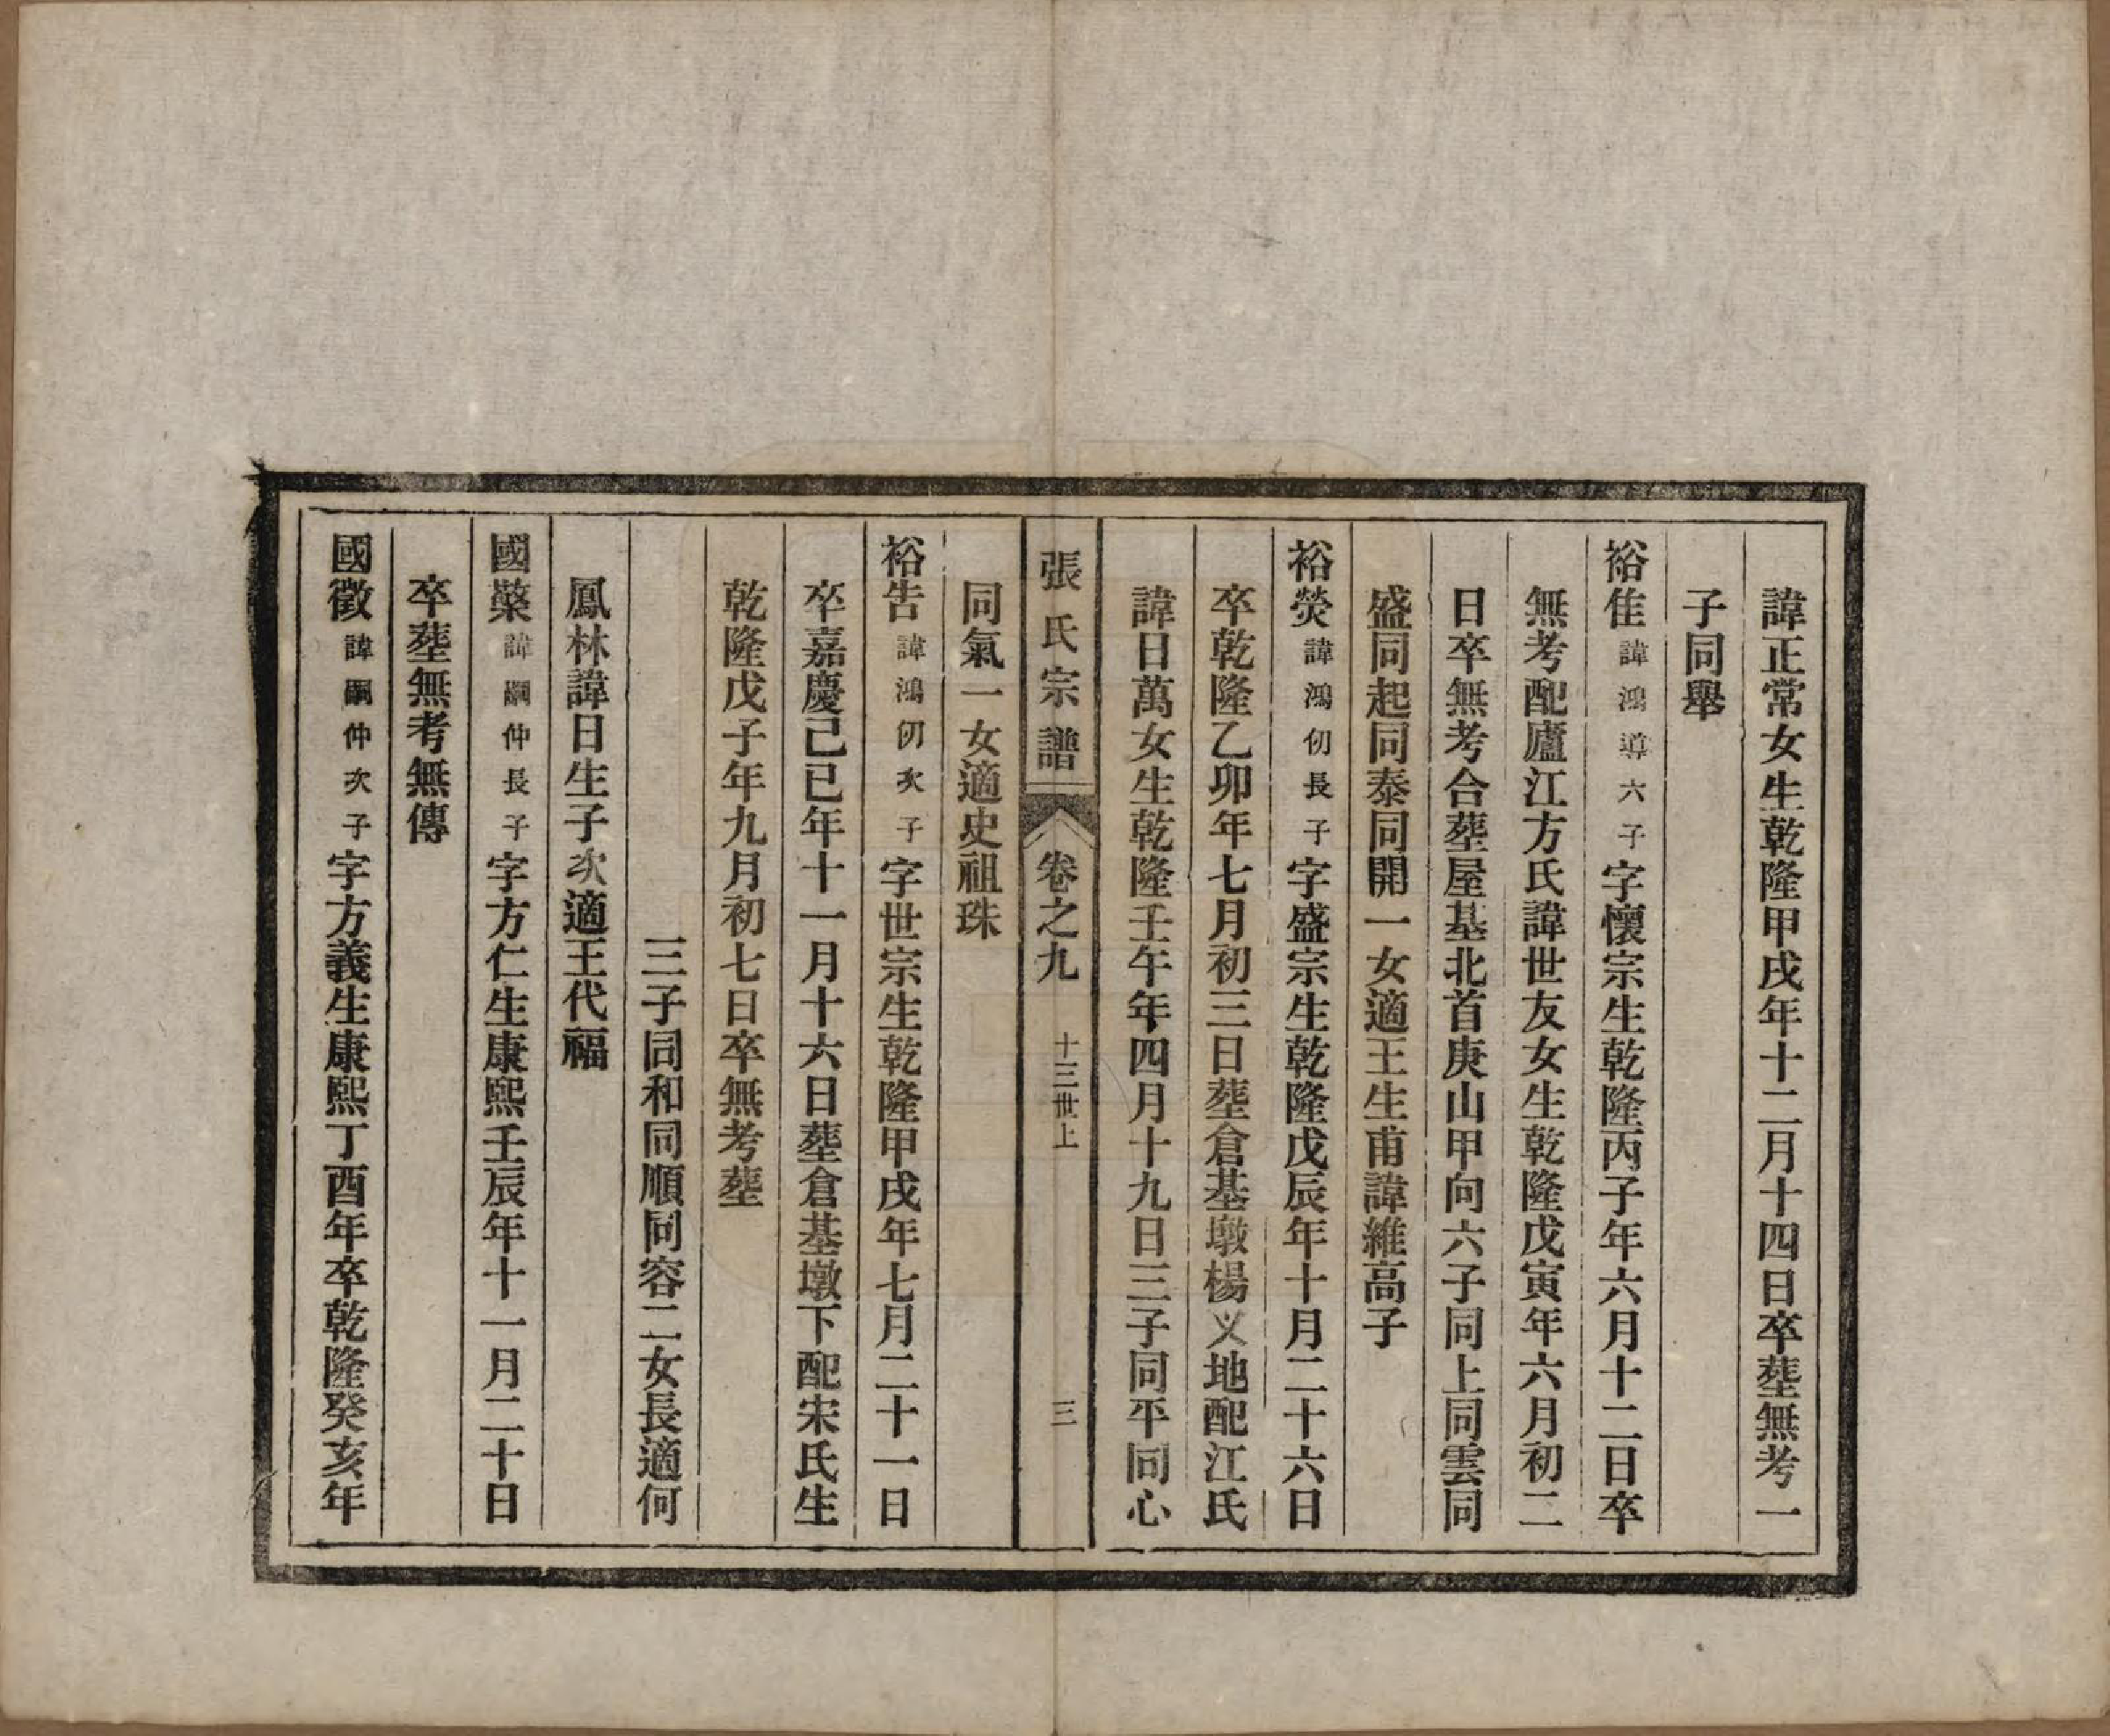 諱正常女生乾隆甲戌年十二月十四日卒塟無考一
子同舉
裕佳諱鴻導六子字懷宗生乾隆丙子年六月十二日卒
無考配廬江方氏諱世友女生乾隆戊寅年六月初二
日卒無考合塟屋基北首庚山甲向六子同上同雲同
盛同起同泰同開一女適王生甫諱維高子
裕熒諱鴻仞長子字盛宗生乾隆戊辰年十月二十六日
卒乾隆乙卯年七月初三日塟倉基墩楊义地配江氏
諱日萬女生乾隆壬午年四月十九日三子同平同心
同氣一女適史祖珠
張氏宗譜 卷之九 十三世上 三
裕告諱鴻仞次子字世宗生乾隆甲戌年七月二十一日
卒嘉慶己巳年十一月十六日塟倉基墩下配宋氏生
乾隆戊子年九月初七日卒無考塟
三子同和同順同容二女長適何
鳳林諱日生子次適王代福
國棨諱嗣仲長子字方仁生康熙壬辰年十一月二十日
卒塟無考無傳
國徵諱嗣仲次子字方義生康熙丁酉年卒乾隆癸亥年